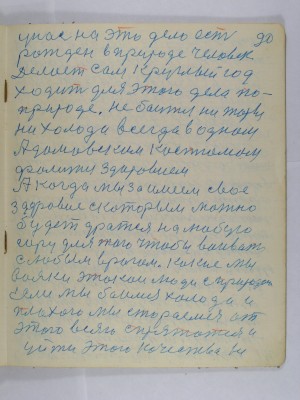 у нас на это дело есть 90
рожден в природе человек
делает сам круглый год
ходит для этого дела по-
природе. не боится ни жары
ни холода всегда в одном
Адамовским костюмом
здоровием
А когда мы заимеем свое
здоровие с которым можно
будет дратся на любую
гору для того чтобы воеват
с любым врагом. какие мы
вояки этакои люди с природои
если мы боимся холода и
плохого мы стараемся от
этого всего спрятатся и
уйти этого качества